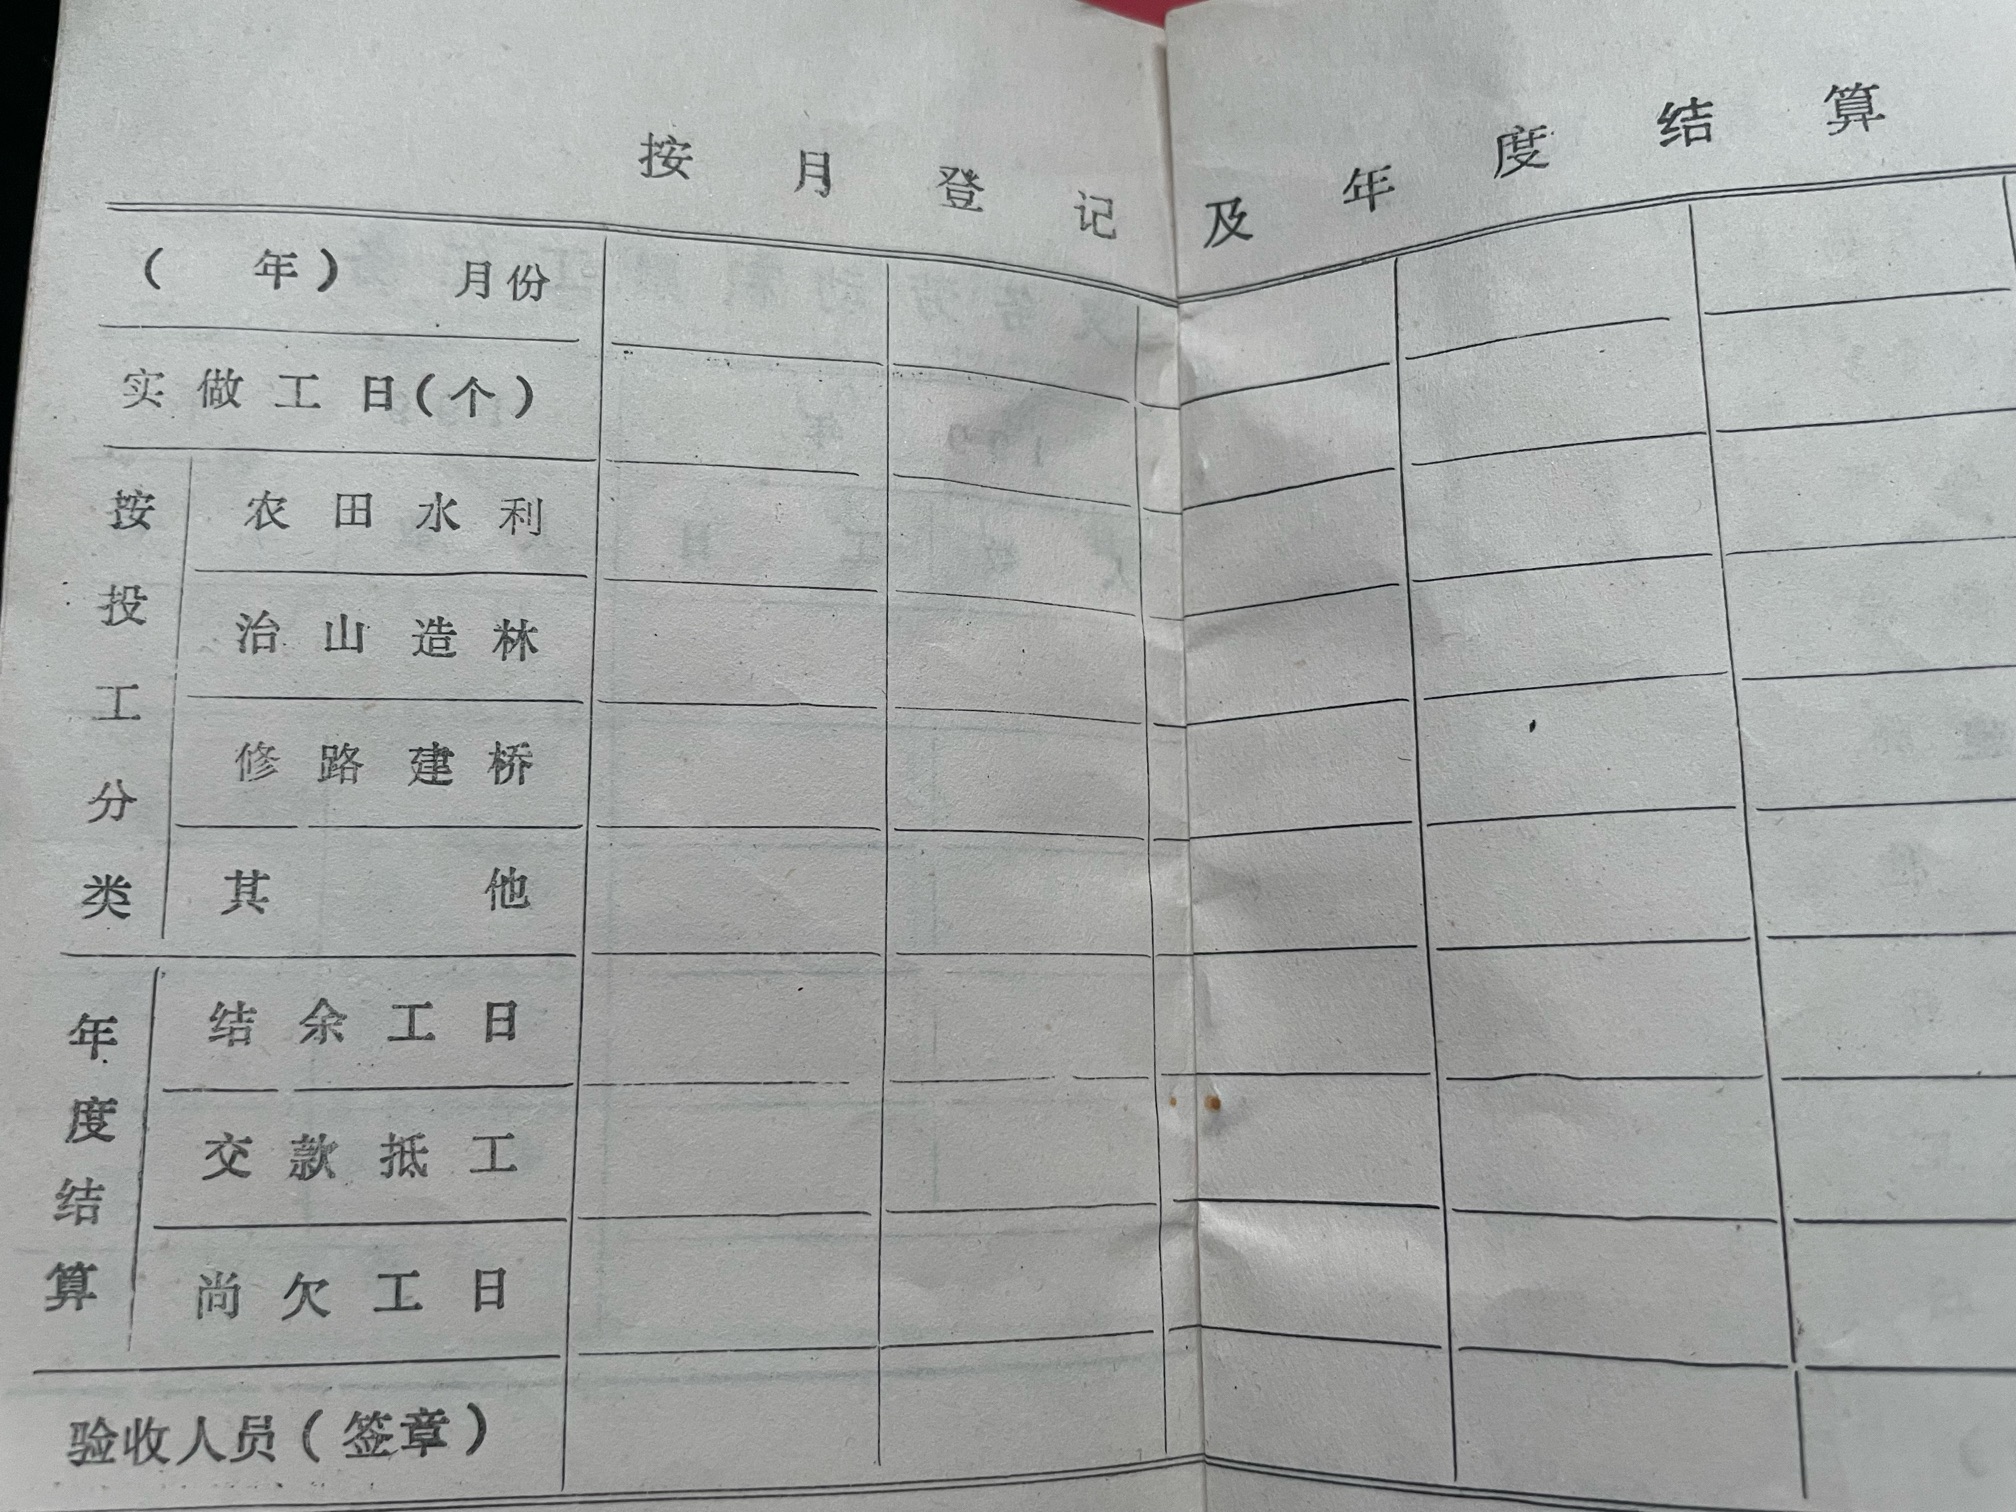 按月登记及年度结算
（　年）　月份
实做工日（个）
按投工分类
农田水利
治山造林
修路建桥
其　他
年度结算
结余工日
交款抵工
尚欠工日
验收人员（签章）